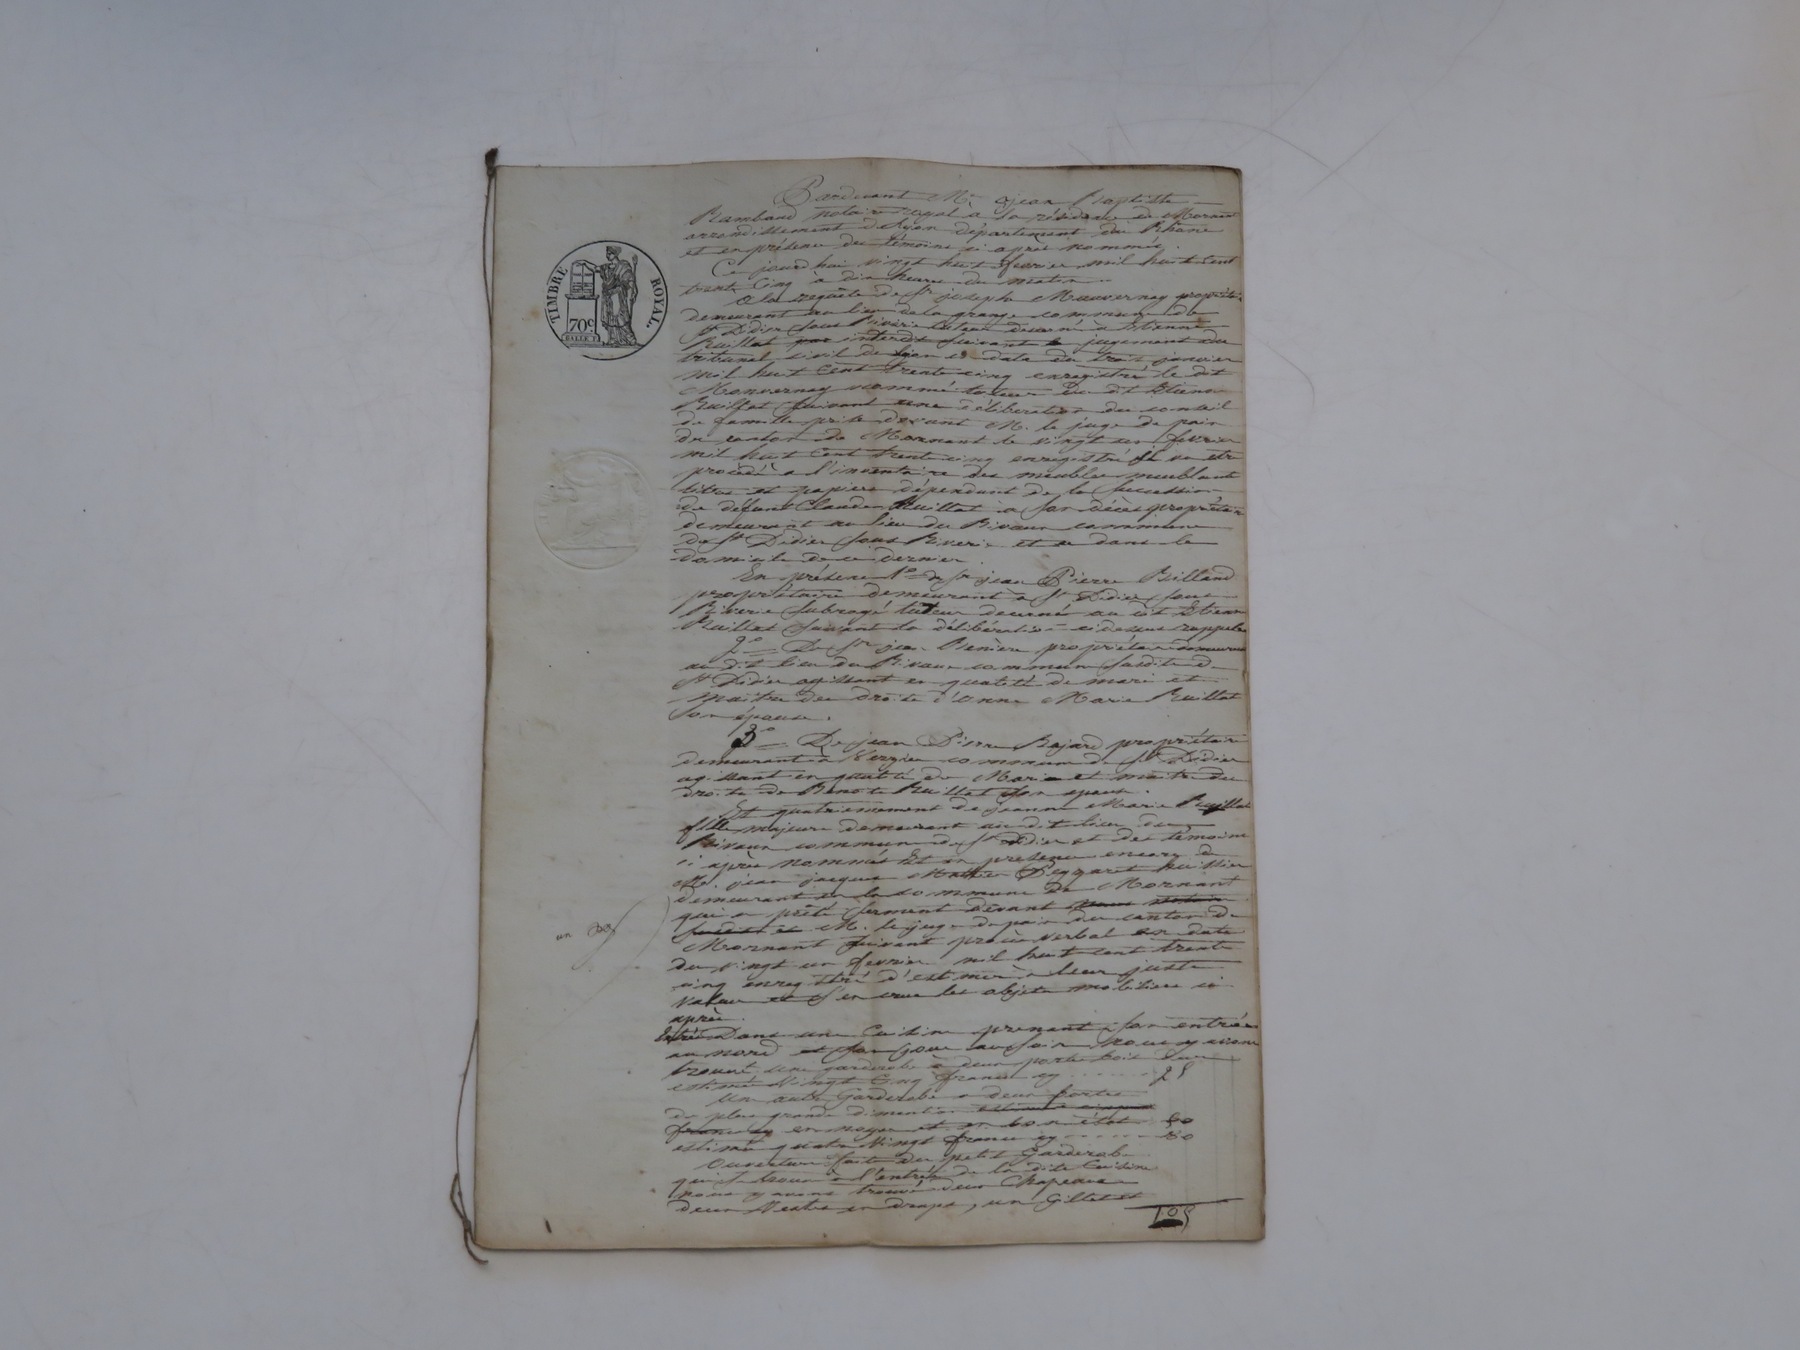 TIMBRE ROYAL.
70c
DALLE T.
Pardevant Me jean Baptiste
Rambaud notaire royal à la résidence de Mornant
arrondissement de Lyon département du Rhône
et en présence des témoins ci après nommés.
Ce jourd'hui vingt huit fevrier mil huit cent
trente cinq à dix heures du matin.
A la requête de Sr joseph Mauvernay propriétaire
demeurant au lieu de la grange commune de
St Didier sous Riverie tuteur décerné à Etienne
Ruillat interdit suivant jugement du
tribunal civil de Lyon en date du trois janvier
mil huit cent trente cinq enregistré le dit
Mauvernay nommé tuteur du dit Etienne
Ruillat suivant une délibération du conseil
de famille prise devant M. le juge de paix
du canton de Mornant le vingt un fevrier
mil huit cent trente cinq enregistré il va être
procédé à l'inventaire des meubles meublant
titres et papiers dépendant de la succession
de défunt Claude Ruillat à son décès propriétaire
demeurant au lieu du Rivaux commune
de St Didier sous Riverie et ce dans le
domicile de ce dernier.
En présence 1o de Sr jean Pierre Billand
propriétaire demeurant à St Didier sous
Riverie subrogé tuteur décerné au dit Etienne
Ruillat suivant la délibération ci dessus rappelée
2o De Sr jean propriétaire demeurant
au dit lieu du Rivaux commune susdite de
St Didier agissant en qualité de mari et
maître des droits d'Anne Marie Ruillat
son épouse.
3o De jean Pierre Bajard propriétaire
demeurant à commune de St Didier
agissant en qualité de Mari et maitre des
droits de Benoite Ruillat son epouse.
Et quatriemement de jeanne Marie Ruillat
fille majeure demeurant au dit lieu du
Rivaux commune de St Didier et des témoins
ci après nommés Et en présence encore de
M. jean jacques huissier
demeurant en la commune de Mornant
qui a prêté serment devant
M. le juge de paix du canton de
Mornant suivant procès verbal en date
du vingt un fevrier mil huit cent trente
cinq enregistré d'estimer à leur juste
valeur et les objets mobiliers ci
après.
Entrés Dans une Cuisine prenant son entrée
au nord et son jour au soir, nous y avons
trouvé une garderobe à deux portes bois
estimé vingt cinq francs cy 25
Un autre Garderobe à deux portes
de plus grande dimention
francs en noyer et en bon état
estimé quatre vingt francs cy 80
Ouverture faite du petit Garderobe
qui se trouve à l'entrée de la dite Cuisine
nous y avons trouvé deux Chapeaux
deux Vestes en draps, un Gillet et
105